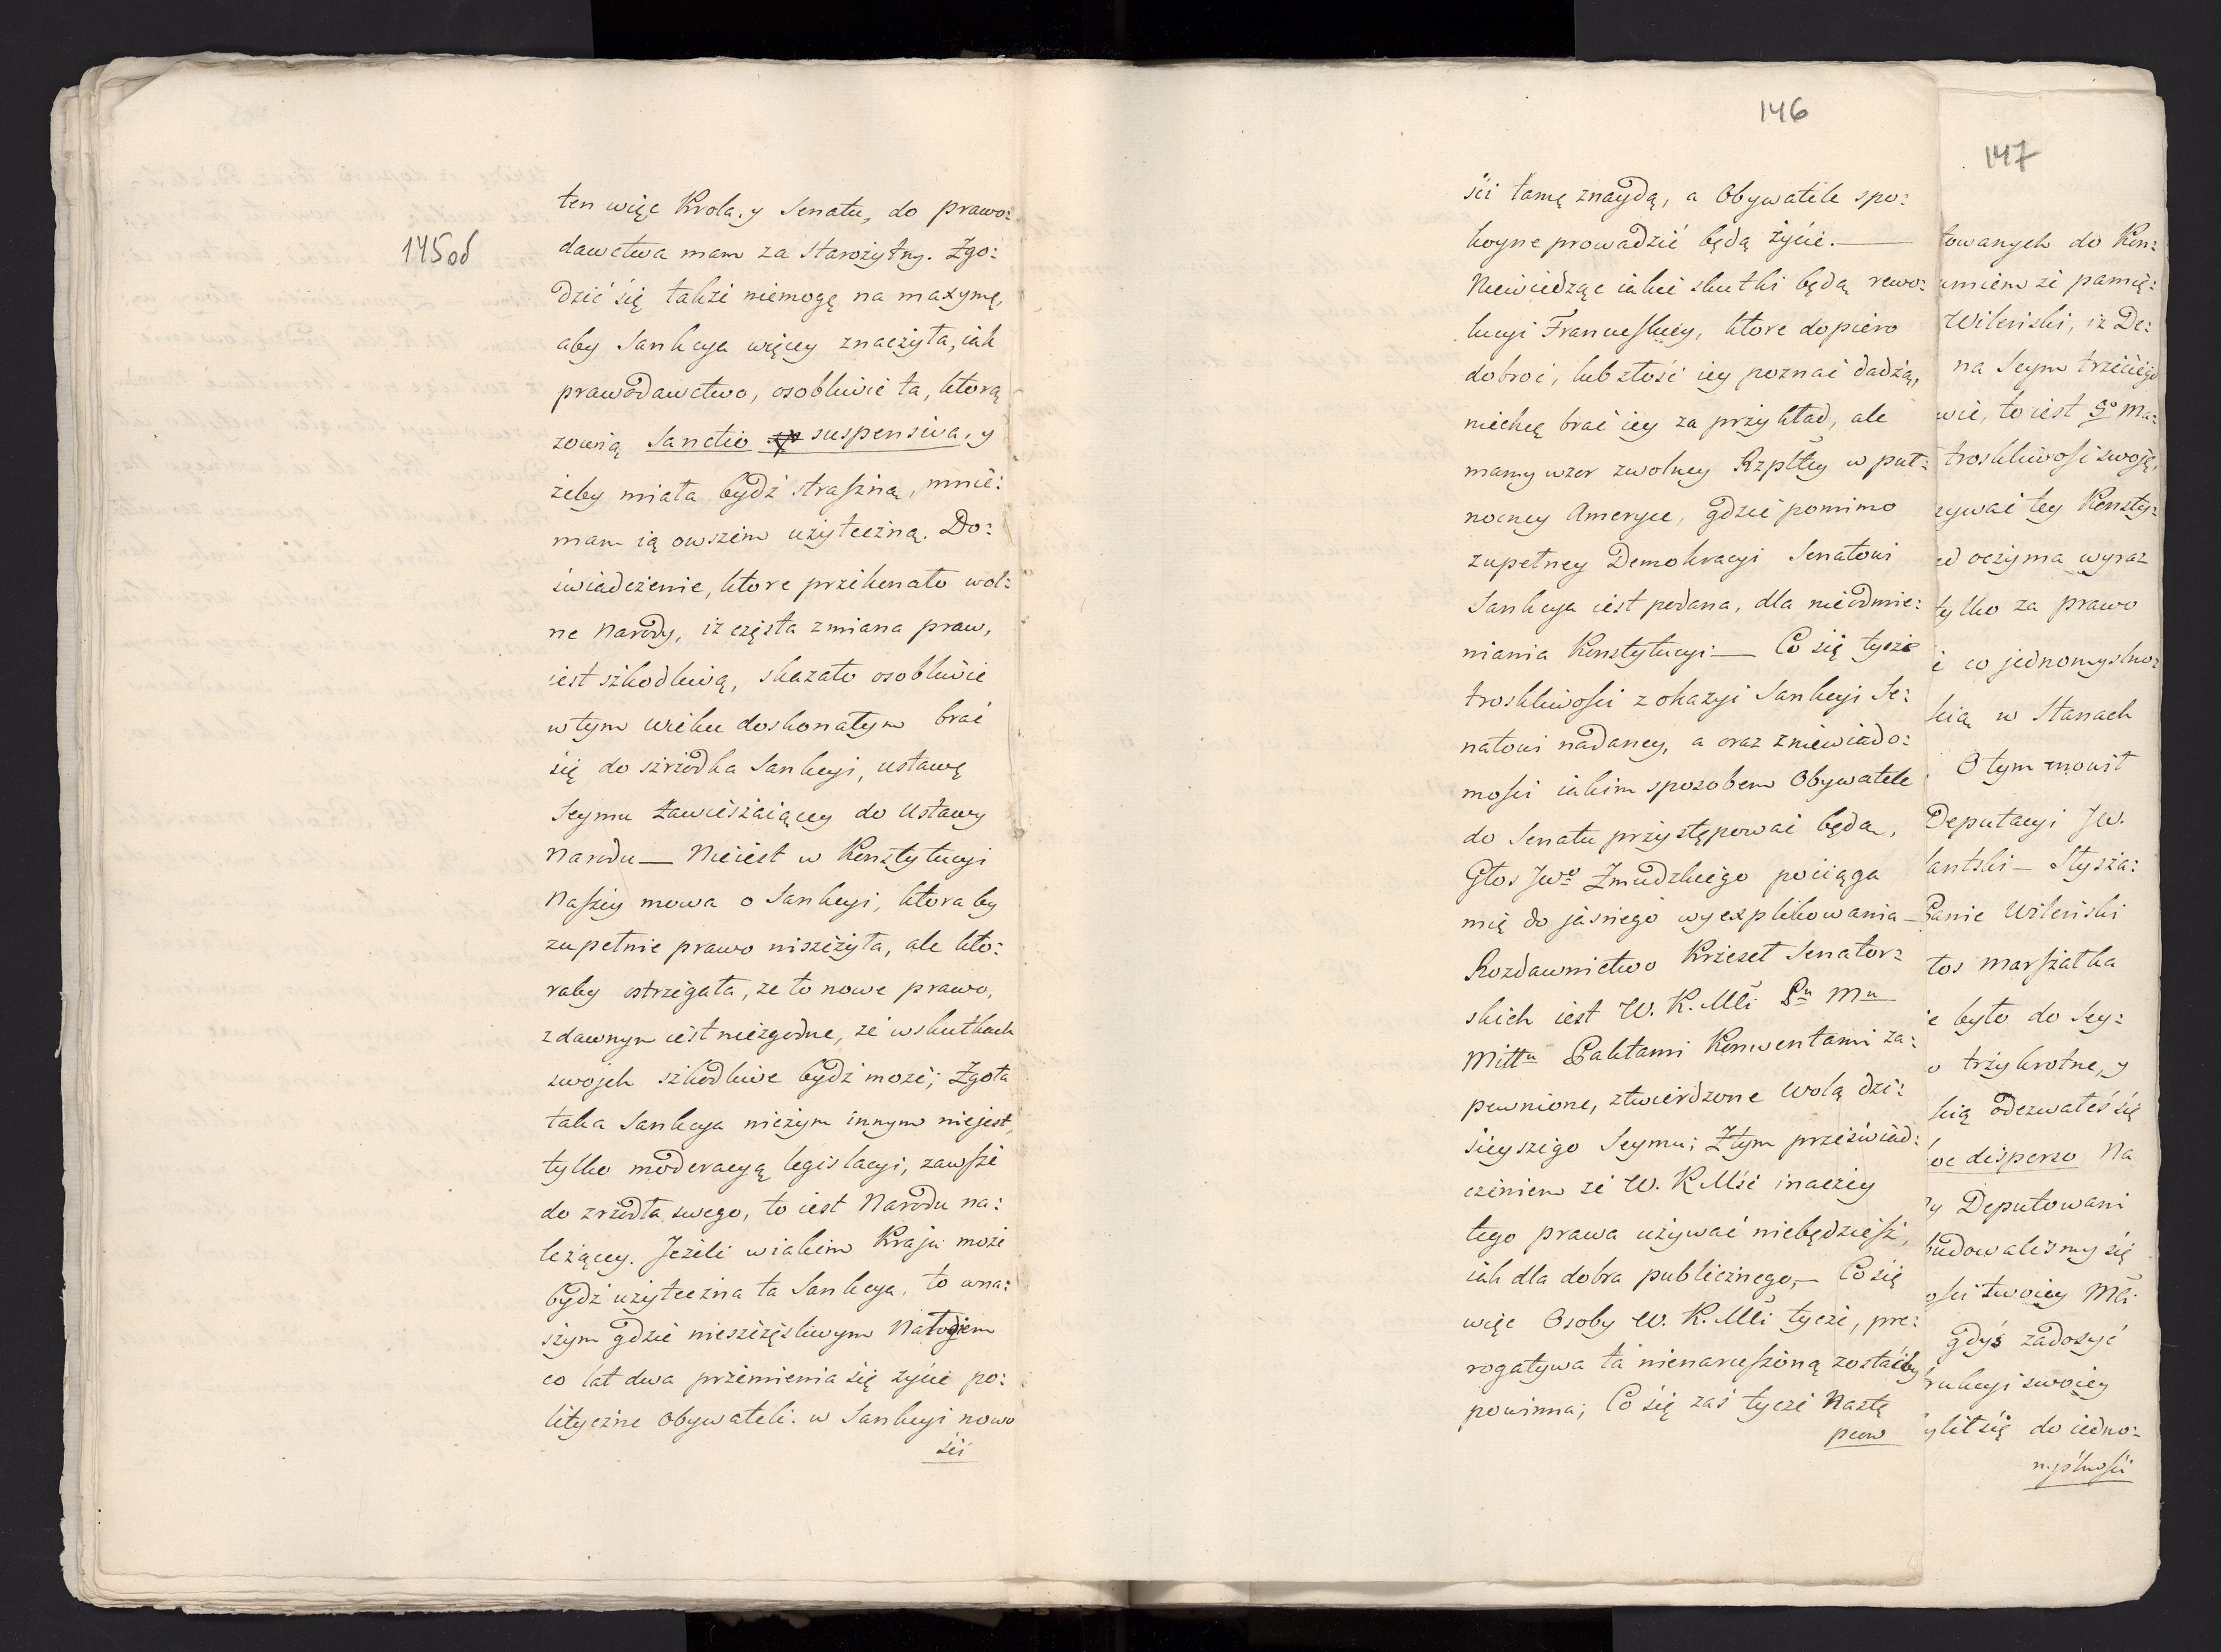 145od
ten więc Krola, y Senatu, do prawo:
dawctwa mam za Starożytny. Zgo:
dzić się także niemogę na maxymę,
aby Sankcya więcey znaczyła, iak
prawodawctwo, osobliwie ta, ktorą
zowią Sanctio suspensiva, y
żeby miała bydź straszna, mnie:
mam ią owszem użyteczną. Do:
świadczenie, ktore przekonało wol:
ne Narody, iż częsta zmiana praw,
iest szkodliwą, skazało osobliwie
w tym wieku doskonałym brać
się do szrzodka Sankcyi, ustawę
Seymu zawieszaiącey do Ustawy
Narodu — Nieiest w Konstytucyi
Naszey mowa o Sankcyi, ktora by
zupełnie prawo niszczyła, ale kto:
raby ostrzegała, że to nowe prawo,
z dawnym iest niezgodne, że w skutkach
swojch szkodliwe bydź może; Zgoła
taka Sankcya niczym innym niejest,
tylko moderacyą legislacyi, zawsze
do zrzodła swego, to iest Narodu na:
leżącey. Jeżeli w iakim Kraju może
bydź użyteczna ta Sankcya, to w na:
szym gdzie nieszczęśliwym Nałogiem
co lat dwa przemienia się życie po:
lityczne Obywateli. w Sankcyi nowo
ści
146
ści tamę znaydą, a Obywatele spo:
koyne prowadzić będą życie. —
Niewiedząc iakie skutki będą rewo:
lucyi Francuskiey, ktore dopiero
dobroć, lub złość iey poznać dadzą,
niechcę brać iey za przykład, ale
mamy wzor zwolney Rzpltey w puł:
nocney Ameryce, gdzie pomimo
zupełney Demokracyi Senatowi
Sankcya iest podana, dla nieodmie:
niania Konstytucyi — Co się tycze
troskliwości z okazyi Sankcyi Se:
natowi nadaney, a oraz z niewiado:
mości iakim sposobem Obywatele
do Senatu przystępować będą,
Głos Jwo Zmudzkiego pociąga
mię do jasnego wyexplikowania —
Rozdawnictwo Krzeseł Senator:
skich iest W. K. Mci Pu Mu
Mittu Paktami Konwentami za:
pewnione, ztwierdzone wolą dzi:
sieyszego Seymu; Z tym przeświad:
czeniem że W. K Mść inaczey
tego prawa używać niebędziesz,
iak dla dobra publicznego, — Co się
więc Osoby W. K. Mci tycze, pre:
rogatywa ta nienaruszoną zostaćby
powinna; Co się zaś tycze Nastę
pcow
147
towanych do Kon:
umiem że pamię:
Wileński, iż De:
na Seym trzeciego
wie, to iest 3o Ma:
troskliwości swoję,
zywać tey Konsty:
ed oczyma wyraz
tylko za prawo
i co jednomyslno:
ścią w Stanach
O tym mowił
Deputacyi JW.
lantski — Słysza:
Panie Wileński
łos Marszałka
e było do Sey:
o trzykrotne, y
ścią odezwałeś się
oc disperso Na
y Deputowani
budowalismy się
ości twoiey Mci
gdyś zadosyć
rukcyi swoiey
ylił się do iedno:
myślności